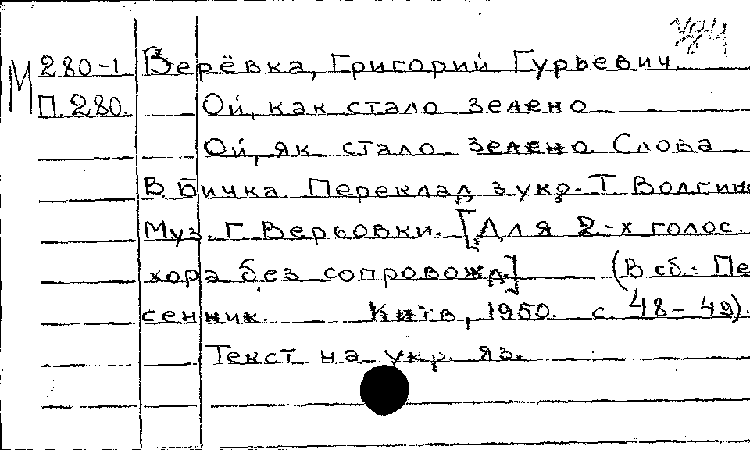 М 280-1 Верёвка, Григорий Гурьевич
П.280. Ой, как стало зелено
Ой, як стало зелено. Слова
В. Бичка. Переклад з укр. Т. Волгин
Муз. Г. Верьовки. [Для 2-х голос.
хора без сопровожд.] (В сб.: Пе
сенник. Київ, 1950. с. 48-49).
Текст на укр. яз.